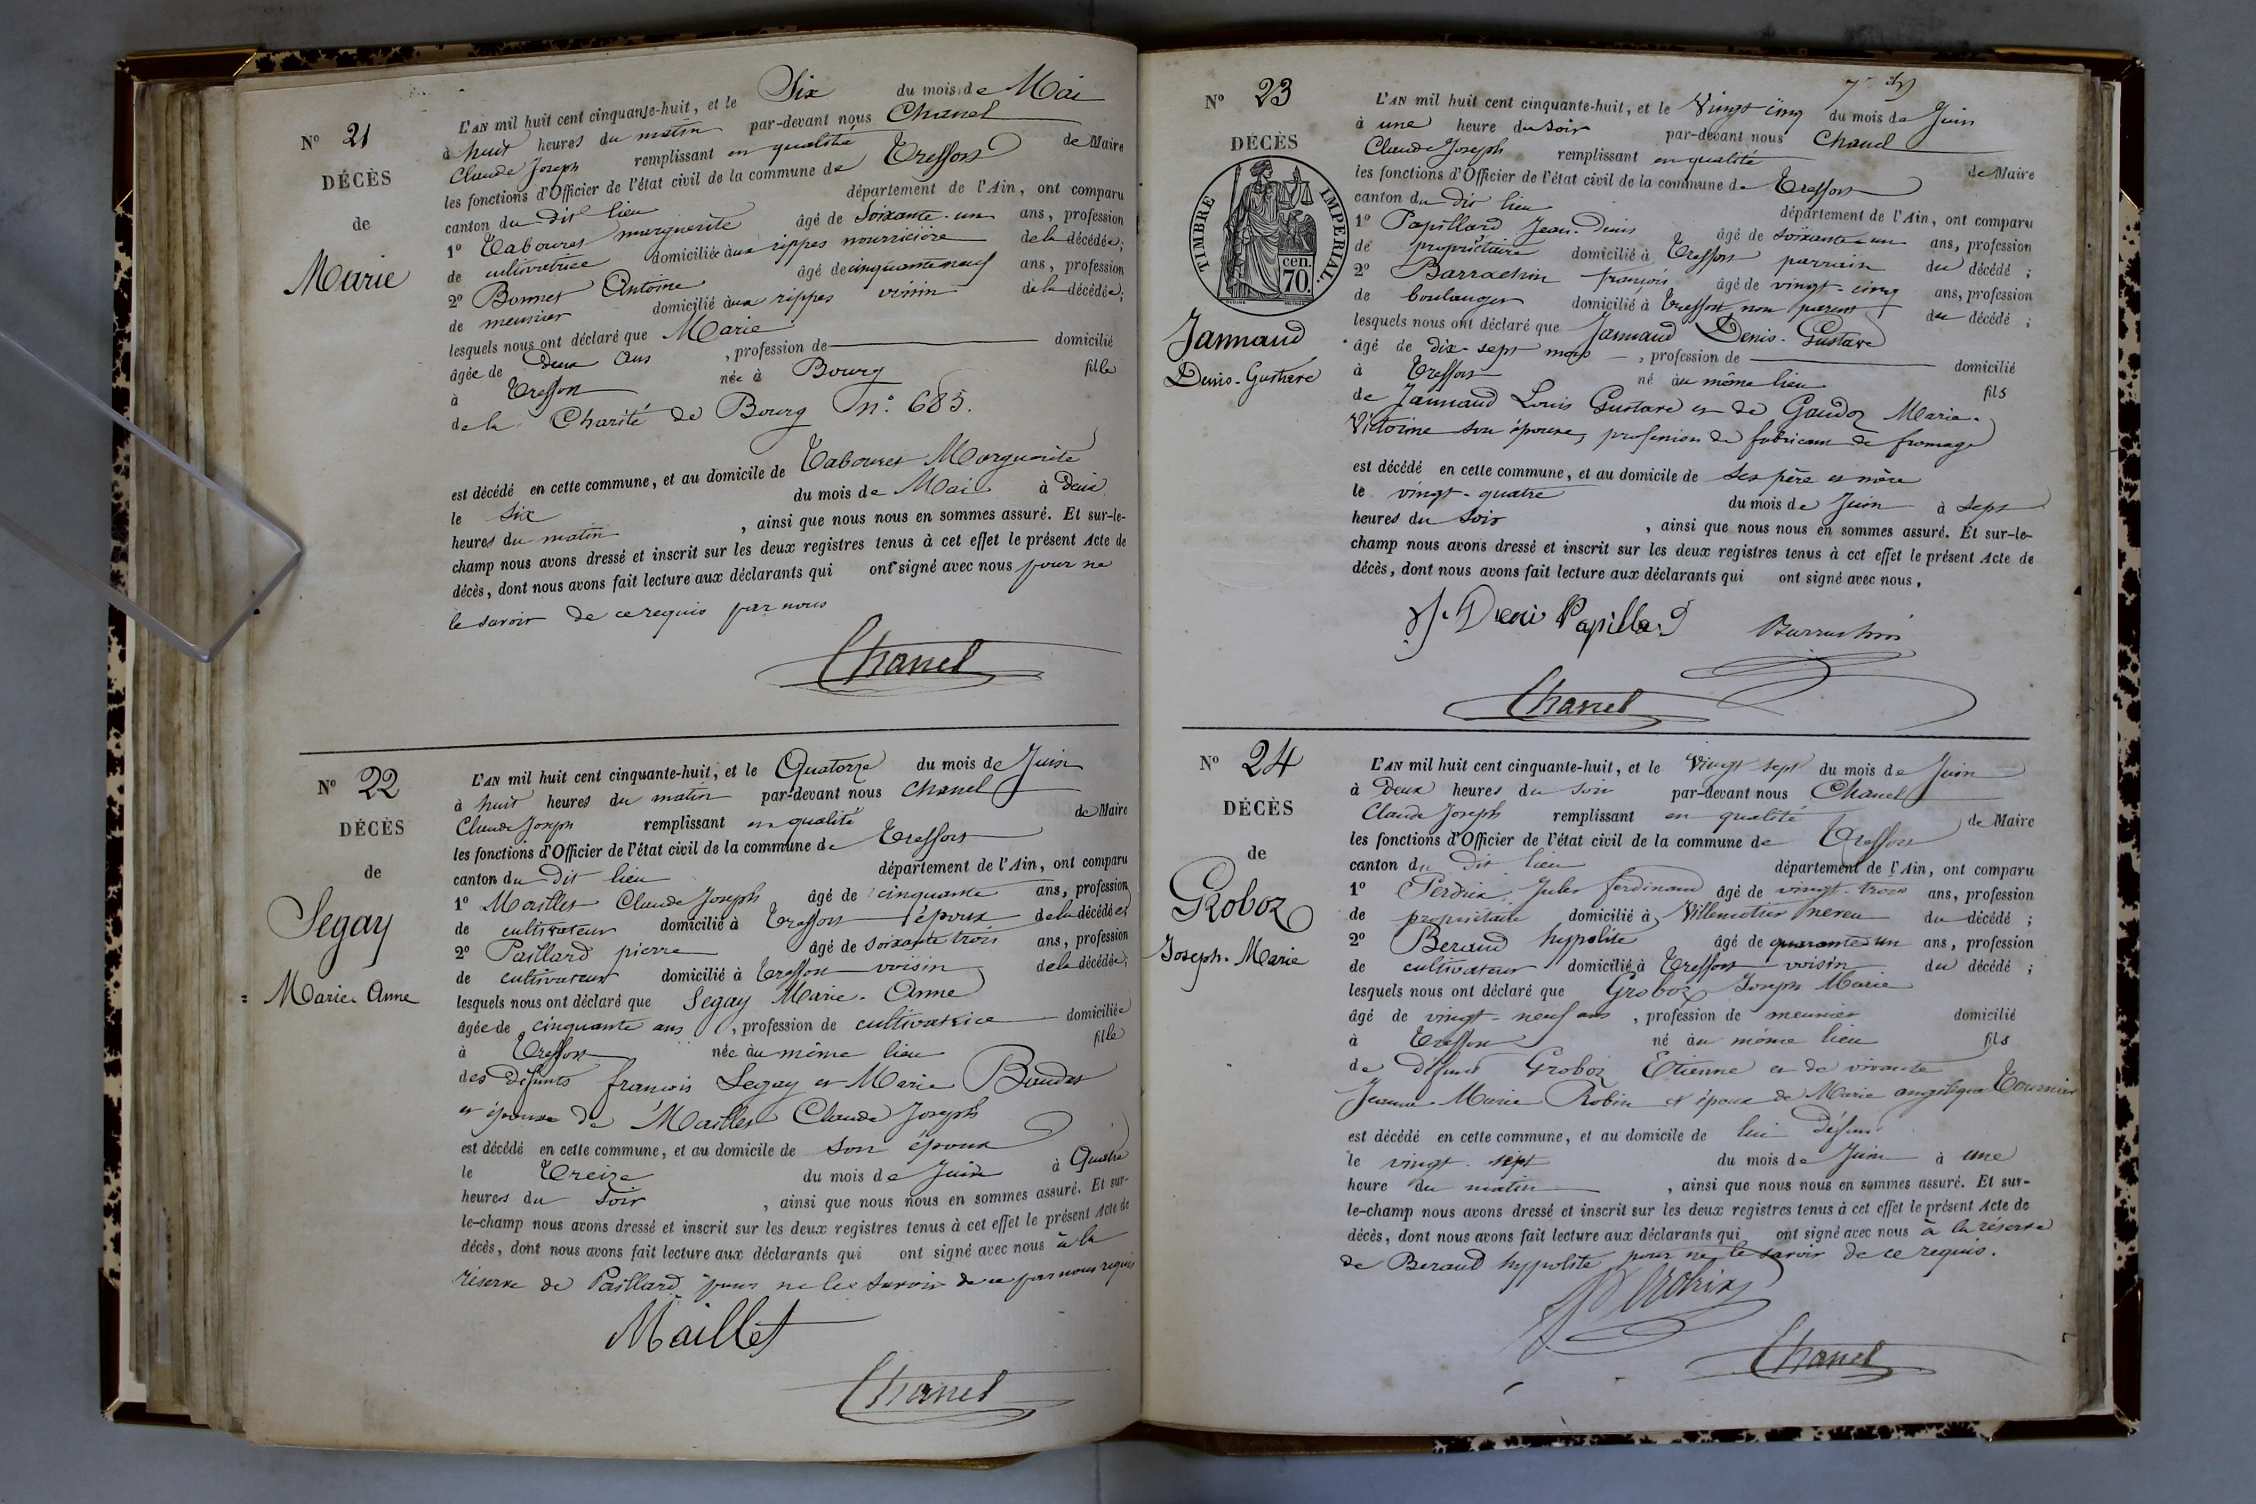 N° 21
DÉCÈS
de
Marie
L'AN mil huit cent cinquante-huit, et le Six du mois de Mai
à huit heures du matin par-devant nous Chanel
Claude Joseph remplissant en qualité de Maire
les fonctions d'Officier de l'état civil de la commune de Treffort
canton du dit lieu département de l'Ain, ont comparu
1° Tabouret marguerite âgé de Soixante-un ans, profession
de cultivatrice domiciliée aux rippes nourricière de la décédée;
2° Bonnet Antoine âgé de cinquante neuf ans, profession
de meunier domicilié aux rippes voisin de la décédée;
lesquels nous ont déclaré que Marie
âgée de Deux ans, profession de domicilié
à Treffort née à Bourg fille
de la Charité de Bourg n° 685.
est décédé en cette commune, et au domicile de Tabouret Marguerite
le six du mois de Mai à Deux
heures du matin, ainsi que nous nous en sommes assuré. Et sur-le-
champ nous avons dressé et inscrit sur les deux registres tenus à cet effet le présent Acte de
décès, dont nous avons fait lecture aux déclarants qui ont signé avec nous pour ne
le savoir de ce requis par nous
Chanel
N° 22
DÉCÈS
de
Segay
Marie-Anne
L'AN mil huit cent cinquante-huit, et le Quatorze du mois de Juin
à huit heures du matin par-devant nous Chanel
Claude Joseph remplissant en qualité de Maire
les fonctions d'Officier de l'état civil de la commune de Treffort
canton du dit lieu département de l'Ain, ont comparu
1° Maillet Claude Joseph âgé de cinquante ans, profession
de cultivateur domicilié à Treffort époux de la décédée;
2° Paillard pierre âgé de soixante trois ans, profession
de cultivateur domicilié à Treffort voisin de la décédée;
lesquels nous ont déclaré que Segay Marie-Anne
âgée de cinquante ans, profession de cultivatrice domiciliée
à Treffort née au même lieu fille
des défunts françois Segay et Marie Baudet
et épouse de Maillet Claude Joseph
est décédé en cette commune, et au domicile de son époux
le treize du mois de Juin à Quatre
heures du soir, ainsi que nous nous en sommes assuré. Et sur-
le-champ nous avons dressé et inscrit sur les deux registres tenus à cet effet le présent Acte de
décès, dont nous avons fait lecture aux déclarants qui ont signé avec nous à la
réserve de Paillard pour ne le savoir de ce par nous requis
Maillet
Chanel
N° 23
DÉCÈS
TIMBRE IMPÉRIAL.
cen.
70.
Jannaud
Denis-Gustave
L'AN mil huit cent cinquante-huit, et le Vingt cinq du mois de Juin
à une heure du soir par-devant nous Chanel
Claude Joseph remplissant en qualité de Maire
les fonctions d'Officier de l'état civil de la commune de Treffort
canton du dit lieu département de l'Ain, ont comparu
1° Papillard Jean-Denis âgé de soixante-un ans, profession
de propriétaire domicilié à Treffort parrain du décédé;
2° Barrachin françois âgé de vingt-cinq ans, profession
de boulanger domicilié à Treffort non parent du décédé;
lesquels nous ont déclaré que Jannaud Denis-Gustave
âgé de dix-sept mois, profession de domicilié
à Treffort né au même lieu fils
de Jannaud Louis Gustave et de Gaudoz Marie-
Victorine son épouse, profession de fabricant de fromage
est décédé en cette commune, et au domicile de ses père et mère
le vingt-quatre du mois de Juin à sept
heures du soir, ainsi que nous nous en sommes assuré. Et sur-le-
champ nous avons dressé et inscrit sur les deux registres tenus à cet effet le présent Acte de
décès, dont nous avons fait lecture aux déclarants qui ont signé avec nous.
Barrachin
Chanel
N° 24
DÉCÈS
de
Groboz
Joseph-Marie
L'AN mil huit cent cinquante-huit, et le Vingt sept du mois de Juin
à Deux heures du soir par-devant nous Chanel
Claude Joseph remplissant en qualité de Maire
les fonctions d'Officier de l'état civil de la commune de Treffort
canton du dit lieu département de l'Ain, ont comparu
1° Perdrix Jules ferdinand âgé de vingt-trois ans, profession
de propriétaire domicilié à Villemotier neveu du décédé;
2° Beraud hypolite âgé de quarante-un ans, profession
de cultivateur domicilié à Treffort voisin du décédé;
lesquels nous ont déclaré que Groboz Joseph Marie
âgé de vingt-neuf ans, profession de meunier domicilié
à Treffort né au même lieu fils
de défunt Groboz Etienne et de vivante
Jeanne-Marie Robin et époux de Marie angélique Tournier
est décédé en cette commune, et au domicile de lui défunt
le vingt-sept du mois de Juin à une
heure du matin, ainsi que nous nous en sommes assuré. Et sur-
le-champ nous avons dressé et inscrit sur les deux registres tenus à cet effet le présent Acte de
décès, dont nous avons fait lecture aux déclarants qui ont signé avec nous à la réserve
de Beraud hypolite pour ne le savoir de ce requis.
Chanel